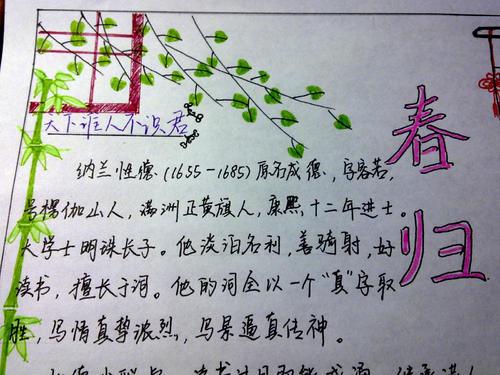 天下谁人不识君
春归
纳兰性德(1655-1685)原名成德,字容若,
号楞伽山人,满洲正黄旗人,康熙十二年进士。
大学士明珠长子。他淡泊名利,善骑射,好
读书,擅长于词。他的词全以一个"真"字取
胜,写情真挚浓烈,写景逼真传神。